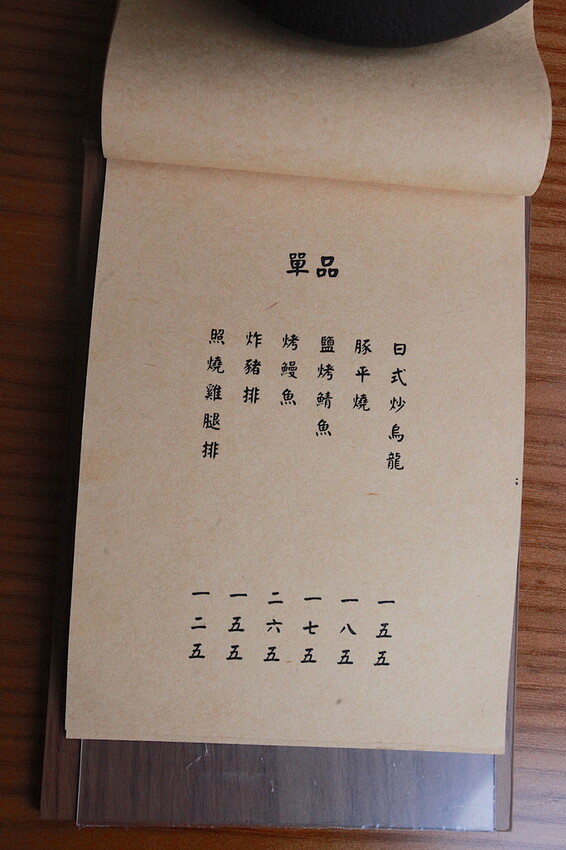 單品
日式炒烏龍
豚平燒
鹽烤鯖魚
烤鰻魚
炸豬排
照燒雞腿排
一五五
一八五
一七五
二六五
一五五
一二五